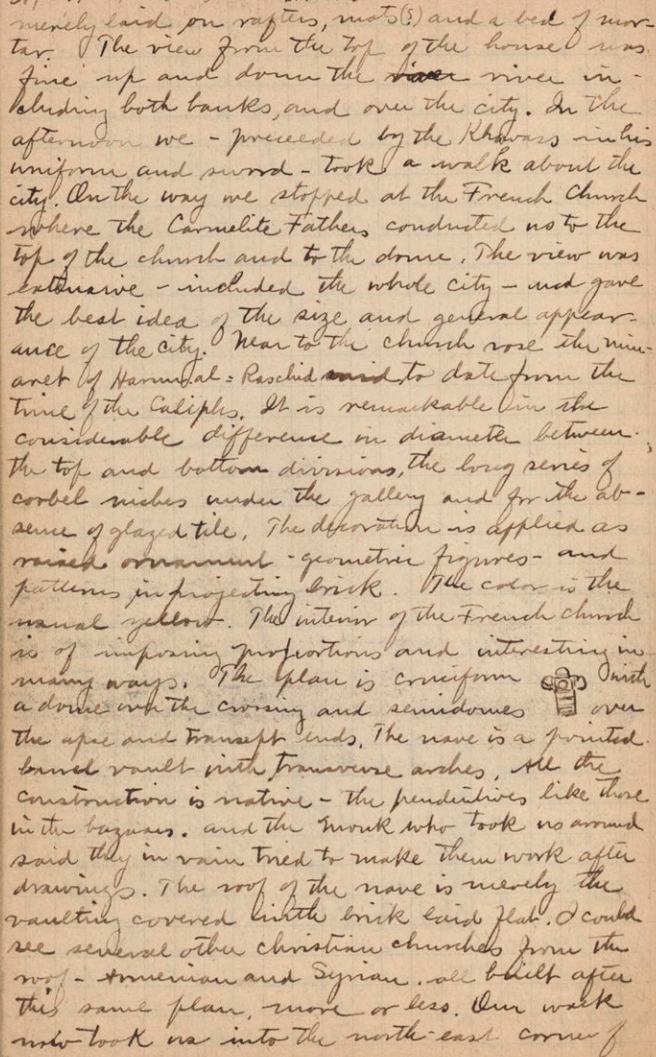 merely laid on rafters, mats(?) and a bed of mor-
tar. The view from the top of the house was
fine up and down the river river in-
cluding both banks, and over the city. In the
afternoon we - preceeded by the Khavass in his
uniform and sword - took a walk about the
city. On the way we stopped at the French Church
where the Carmelite Fathers conducted us to the
top of the church and to the dome. The view was
extensive - included the whole city - and gave
the best idea of the size and general appear-
ance of the city. Near to the church rose the min-
aret of Haroun-al-Raschid said to date from the
time of the Caliphs. It is remarkable in the
considerable difference in diameter between
the top and bottom divisions, the long series of
corbel niches under the gallery and for the ab-
sence of glazed tile. The decoration is applied as
raised ornament - geometric figures - and
patterns in projecting brick. The color is the
usual yellow. The interior of the French church
is of imposing proportions and interesting in
many ways. The plan is cruciform with
a dome over the crossing and semidomes over
the apse and transept ends. The nave is a pointed
barrel vault with transverse arches. All the
construction is native - the pendentives like those
in the bazaars. and the monk who took us around
said they in vain tried to make them work after
drawings. The roof of the nave is merely the
vaulting covered with brick laid flat. I could
see several other christian churches from the
roof - Armenian and Syrian. all built after
this same plan, more or less. Our walk
now took us into the north-east corner of